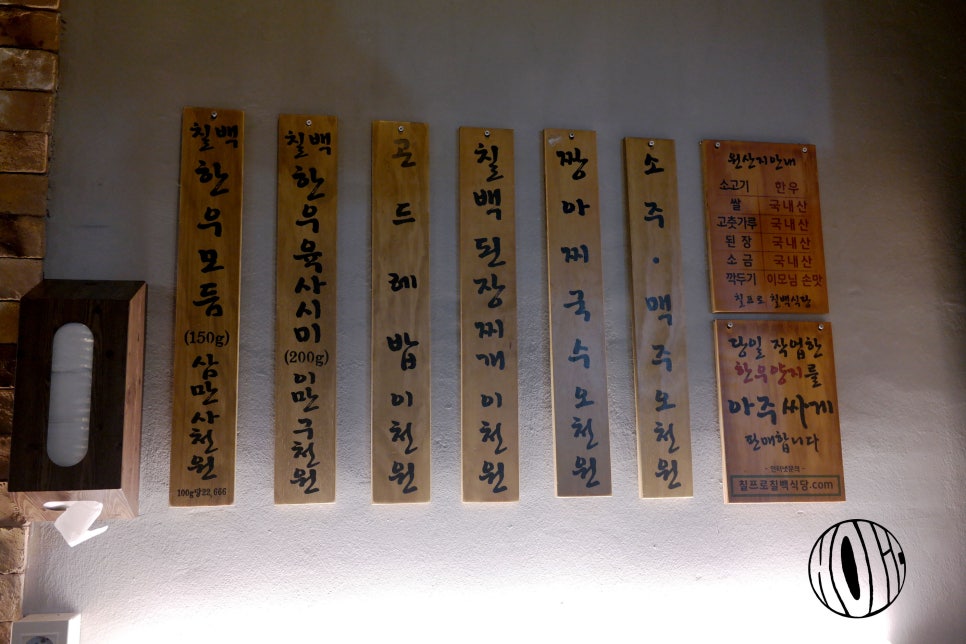 칠백
한우모듬
(150g)
삼만사천원
100g당22,666
칠백
한우육사시미
(200g)
이만구천원
곤드레밥이천원
칠백된장찌개이천원
짱아찌국수오천원
소주·맥주오천원
원산지안내
소고기 한우
쌀 국내산
고춧가루 국내산
된장 국내산
소금 국내산
깍두기 이모님 손맛
칠프로 칠백식당
당일 작업한
한우양지를
아주싸게
판매합니다
- 인터넷문의 -
칠프로칠백식당.com